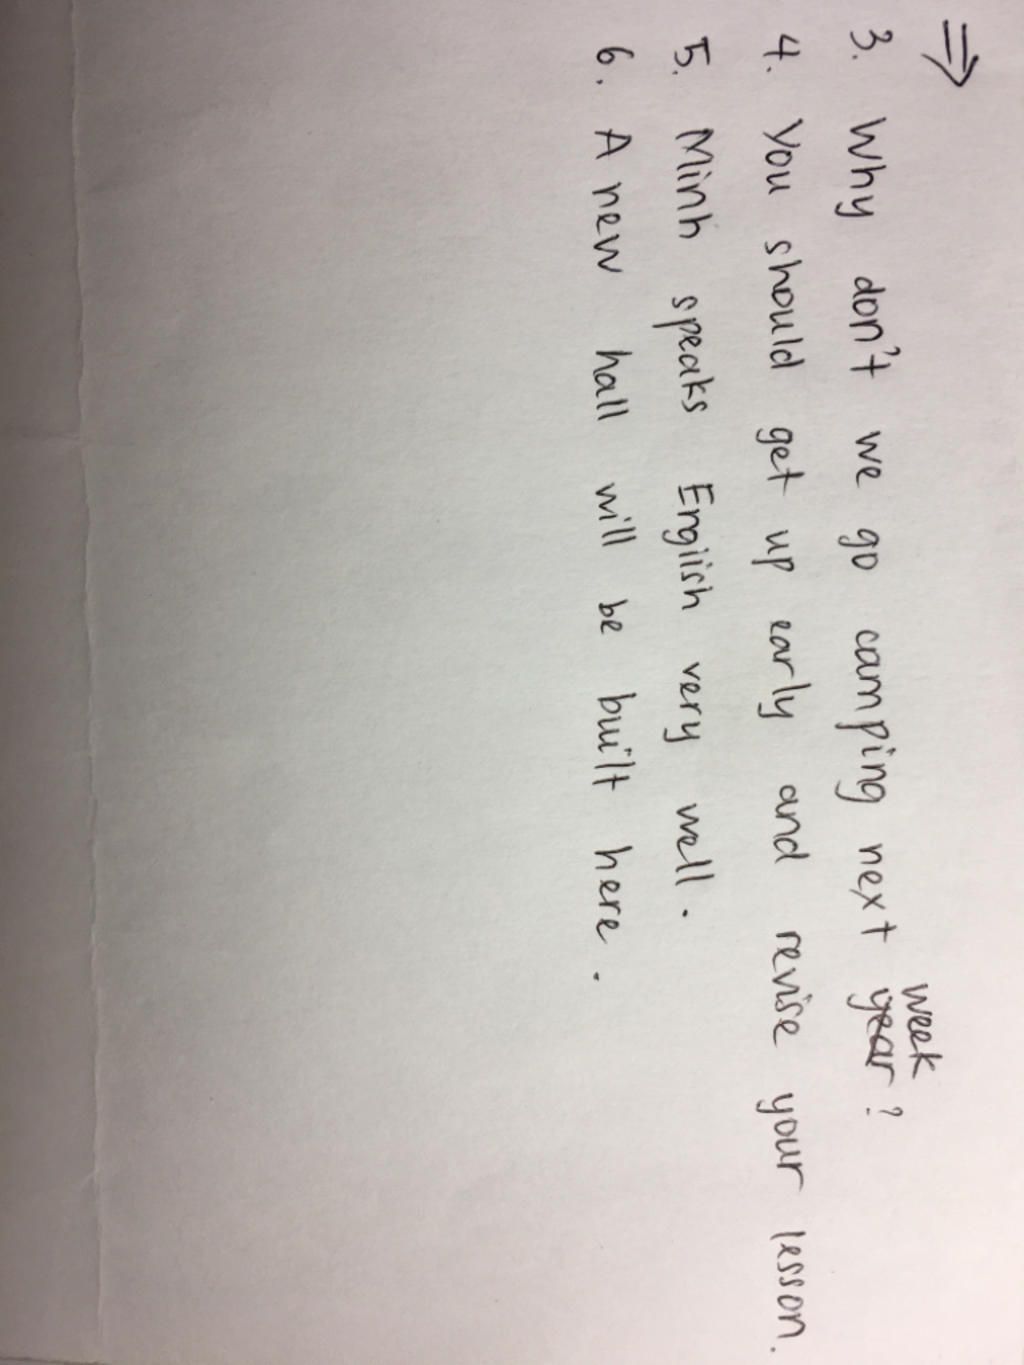 ⇒
3. Why don't we go camping next week ?
4. You should get up early and revise your lesson.
5. Minh speaks English very well.
6. A new hall will be built here.